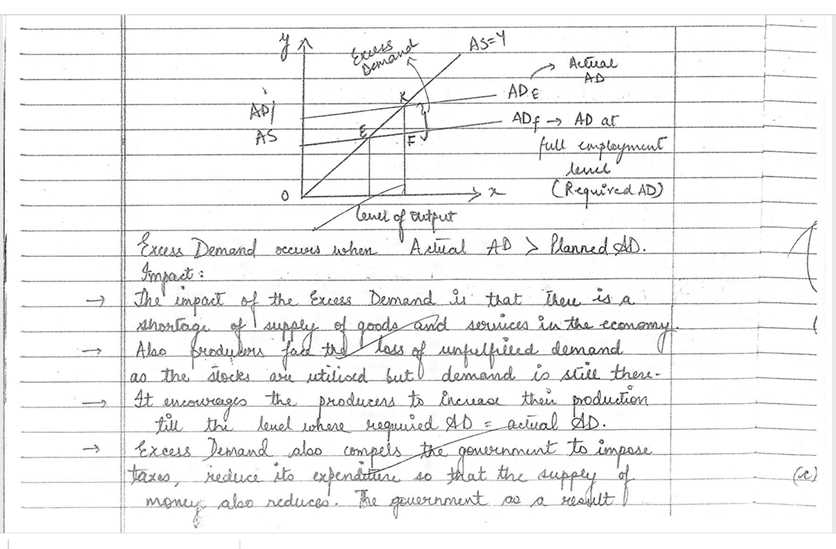 y
Excess
Demand
AS=Y
Actual
AD
AD E
K
AD/
AS
E
F
AD f → AD at
full employment
level
(Required AD)
O
x
level of output
Excess Demand occurs when Actual AD > Planned AD.
Impact:
→ The impact of the Excess Demand is that there is a
shortage of supply of goods and services in the economy.
→ Also producers face the loss of unfulfilled demand
as the stocks are utilised but demand is still there.
→ It encourages the producers to increase their production
till the level where required AD = actual AD.
→ Excess Demand also compels the government to impose
taxes, reduce its expenditure so that the supply of
money also reduces. The government as a result